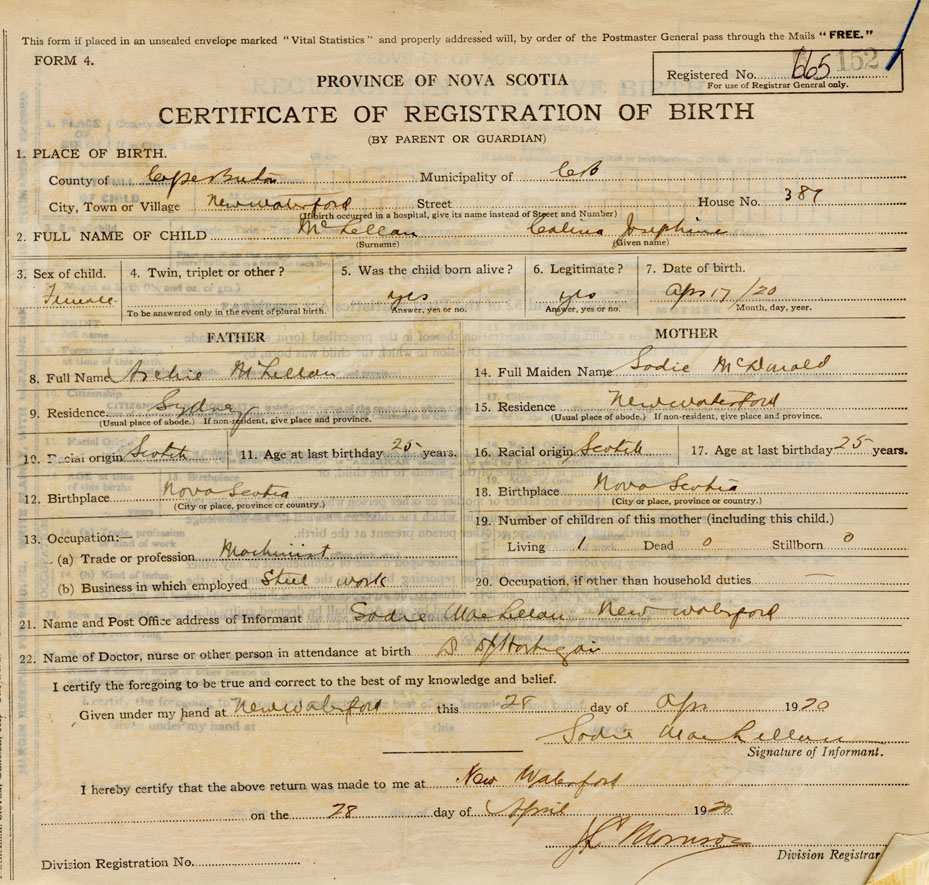 This form if placed in an unsealed envelope marked "Vital Statistics" and properly addressed will, by order of the Postmaster General pass through the Mails "FREE."
FORM 4.
Registered No. 665 152
For use of Registrar General only.
PROVINCE OF NOVA SCOTIA
CERTIFICATE OF REGISTRATION OF BIRTH
(BY PARENT OR GUARDIAN)
1. PLACE OF BIRTH.
County of Cape Breton Municipality of C B
City, Town or Village New Waterford Street House No. 387
(If birth occurred in a hospital, give its name instead of Street and Number)
2. FULL NAME OF CHILD McLellan Josephine
(Surname) (Given name)
3. Sex of child. 4. Twin, triplet or other? 5. Was the child born alive? 6. Legitimate? 7. Date of birth.
Female yes yes Apr 17/20
To be answered only in the event of plural birth. Answer, yes or no. Answer, yes or no. Month, day, year.
FATHER MOTHER
8. Full Name Archie McLellan 14. Full Maiden Name Sadie McDonald
9. Residence Sydney 15. Residence New Waterford
(Usual place of abode.) If non-resident, give place and province. (Usual place of abode.) If non-resident, give place and province.
10. Racial origin Scotch 11. Age at last birthday 25 years. 16. Racial origin Scotch 17. Age at last birthday 25 years.
12. Birthplace Nova Scotia 18. Birthplace Nova Scotia
(City or place, province or country.) (City or place, province or country.)
13. Occupation:— 19. Number of children of this mother (including this child.)
(a) Trade or profession Machinist Living 1 Dead 0 Stillborn 0
(b) Business in which employed Steel work 20. Occupation, if other than household duties. —
21. Name and Post Office address of Informant Sadie MacLellan New Waterford
22. Name of Doctor, nurse or other person in attendance at birth Hartigan
I certify the foregoing to be true and correct to the best of my knowledge and belief.
Given under my hand at New Waterford this 28 day of Apr 1920
Sadie MacLellan
Signature of Informant.
I hereby certify that the above return was made to me at New Waterford
on the 28 day of April 1920
Morrison
Division Registration No. Division Registrar